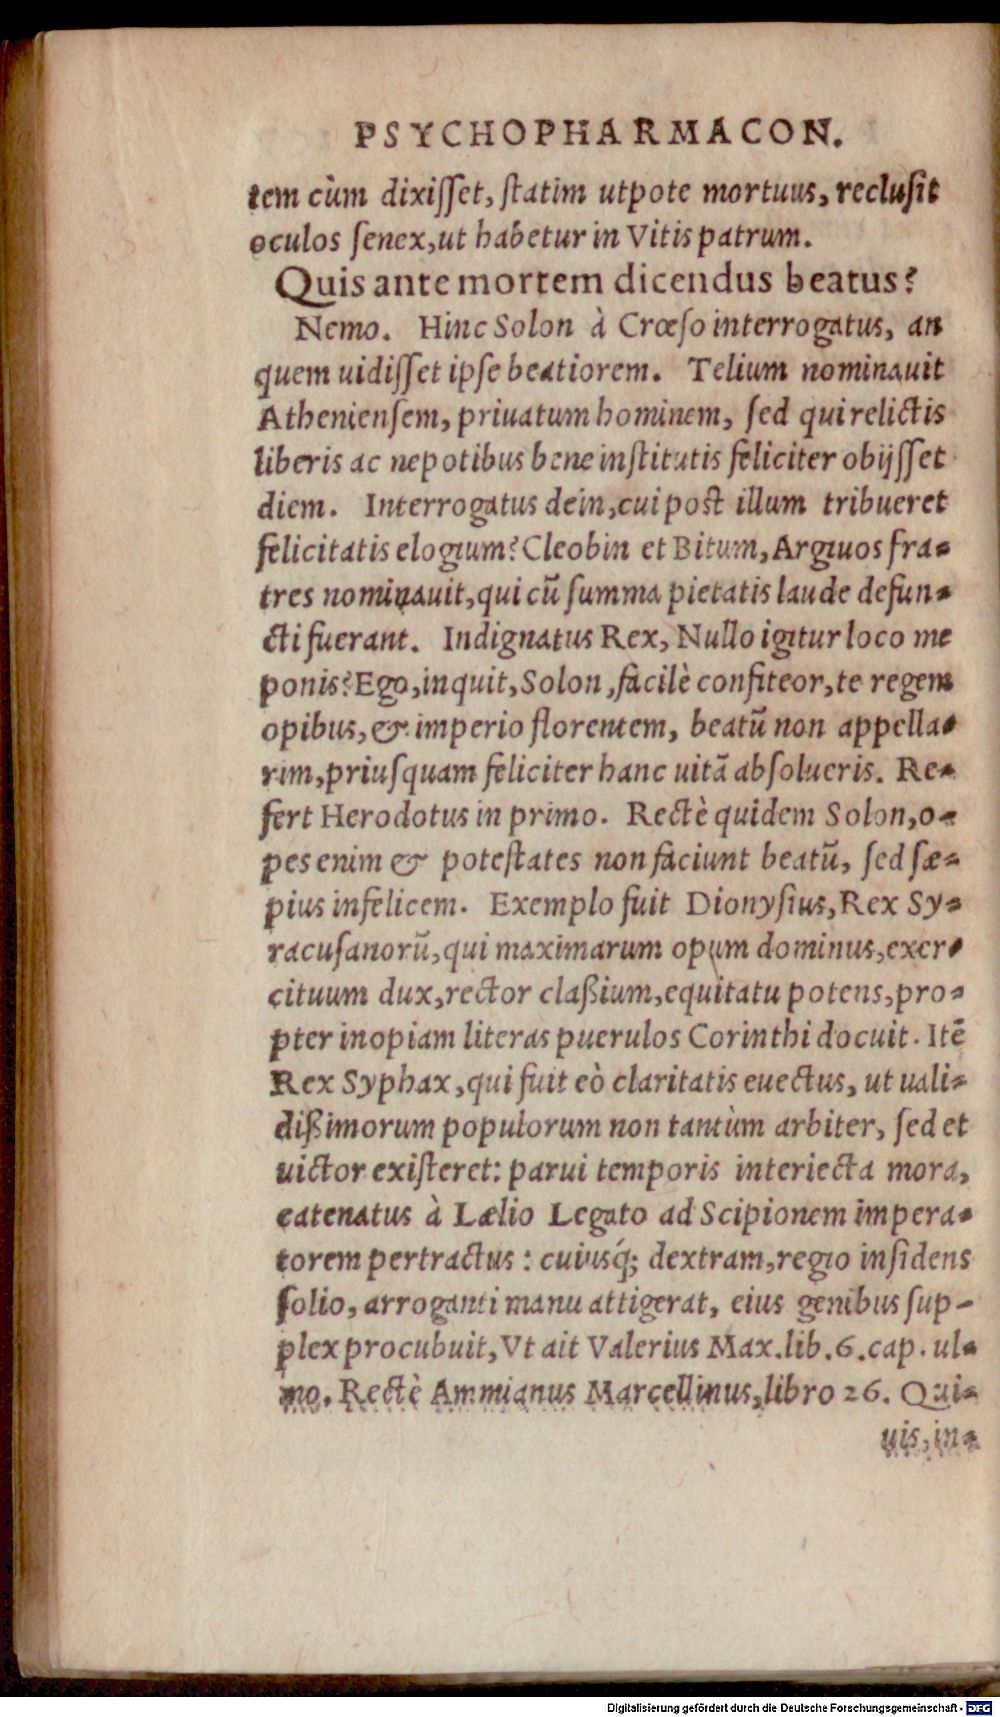 PSYCHOPHARMACON.
tem cùm dixiſſet, ſtatim utpote mortuus, recluſit
oculos ſenex, ut habetur in Vitis patrum.
Quis ante mortem dicendus beatus?
Nemo. Hinc Solon à Crœſo interrogatus, an
quem uidiſſet ipſe beatiorem. Telium nominauit
Athenienſem, priuatum hominem, ſed qui relictis
liberis ac nepotibus bene inſtitutis feliciter obijſſet
diem. Interrogatus dein, cui poſt illum tribueret
felicitatis elogium? Cleobin et Bitum, Argiuos fra-
tres nominauit, qui cũ ſumma pietatis laude defun-
cti fuerant. Indignatus Rex, Nullo igitur loco me
ponis? Ego, inquit, Solon, facilè confiteor, te regem
opibus, & imperio florentem, beatũ non appella-
rim, priuſquam feliciter hanc uitã abſolueris. Re-
fert Herodotus in primo. Rectè quidem Solon, o-
pes enim & poteſtates non faciunt beatũ, ſed ſæ-
pius infelicem. Exemplo fuit Dionyſius, Rex Sy-
racuſanorũ, qui maximarum opum dominus, exer-
cituum dux, rector claßium, equitatu potens, pro-
pter inopiam literas puerulos Corinthi docuit. Itẽ
Rex Syphax, qui fuit eò claritatis euectus, ut uali-
dißimorum populorum non tantùm arbiter, ſed et
uictor exiſteret: parui temporis interiecta mora,
catenatus à Lælio Legato ad Scipionem impera-
torem pertractus: cuiusq́; dextram, regio inſidens
ſolio, arroganti manu attigerat, eius genibus ſup-
plex procubuit, Vt ait Valerius Max. lib. 6. cap. ul-
mo. Rectè Ammianus Marcellinus, libro 26. Qui-
uis, in-
Digitalisierung gefördert durch die Deutsche Forschungsgemeinschaft - DFG